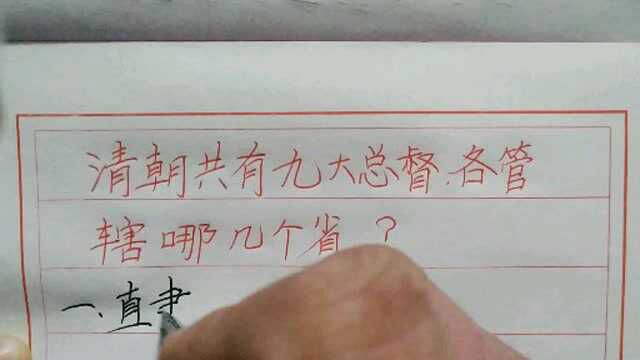 清朝共有九大总督.各管
辖哪几个省？
一、直